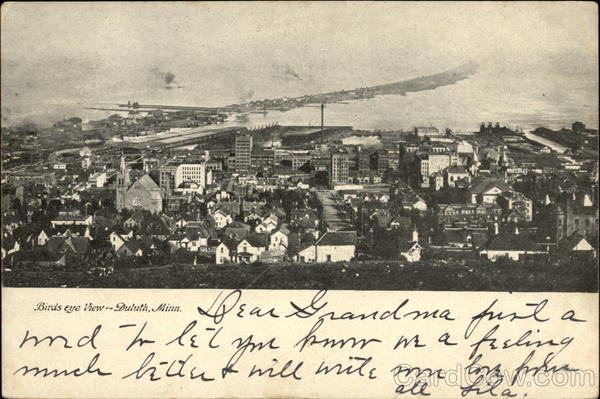 Birds eye View -- Duluth, Minn.
Dear Grandma just a
word to let you know we a feeling
much better & will write
all Lila.
CardCow.com